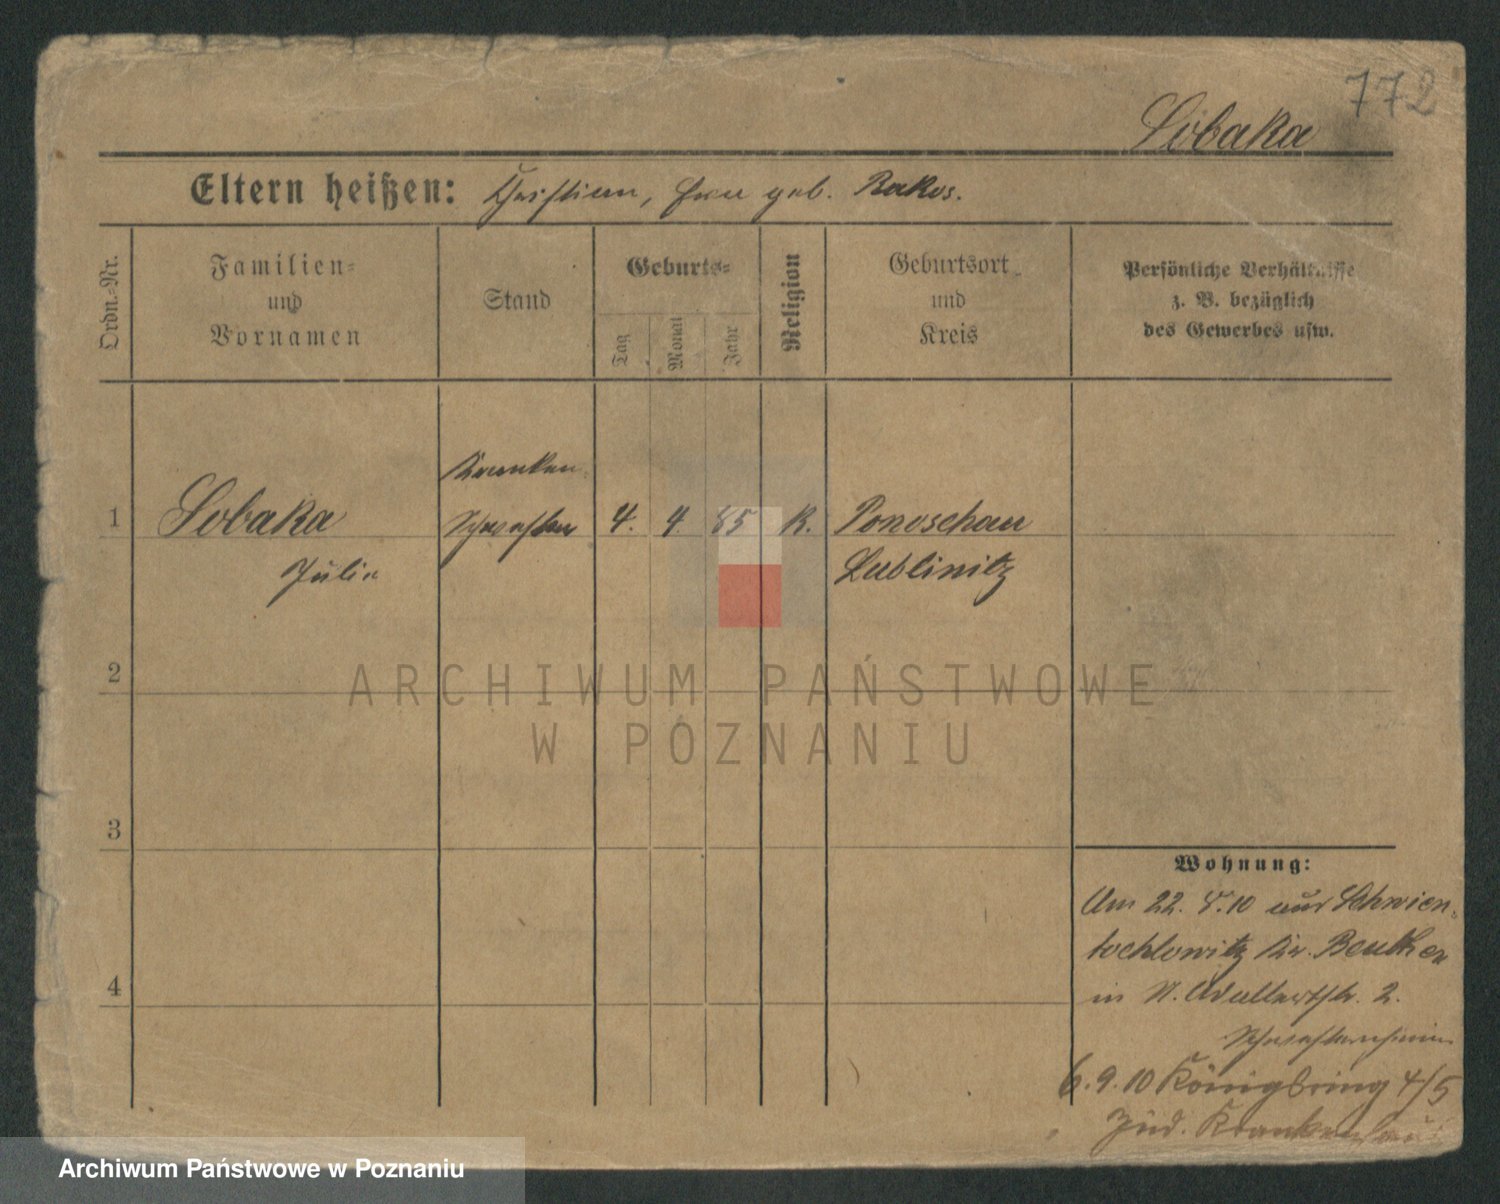 772
Sobaka
Eltern heißen: Christian, Eva geb. Bakos.
Ordn.-Nr.
Familien-
und
Vornamen
Stand
Geburts-
Tag
Monat
Jahr
Religion
Geburtsort
und
Kreis
Persönliche Verhältnisse
z. B. bezüglich
des Gewerbes usw.
Kranken-
1 Sobaka Schwester 4. 4 85 K. Ponoschau
Julie Lublinitz
2
ARCHIWUM PAŃSTWOWE
W POZNANIU
3
Wohnung:
Am 22. 8. 10 aus Schwien-
tochlowitz Kr. Beuthen
in St. Adalbertstr. 2.
Schwesternheim
6.9.10 Königsring 4/5
Jüd. Krankenhaus
4
Archiwum Państwowe w Poznaniu